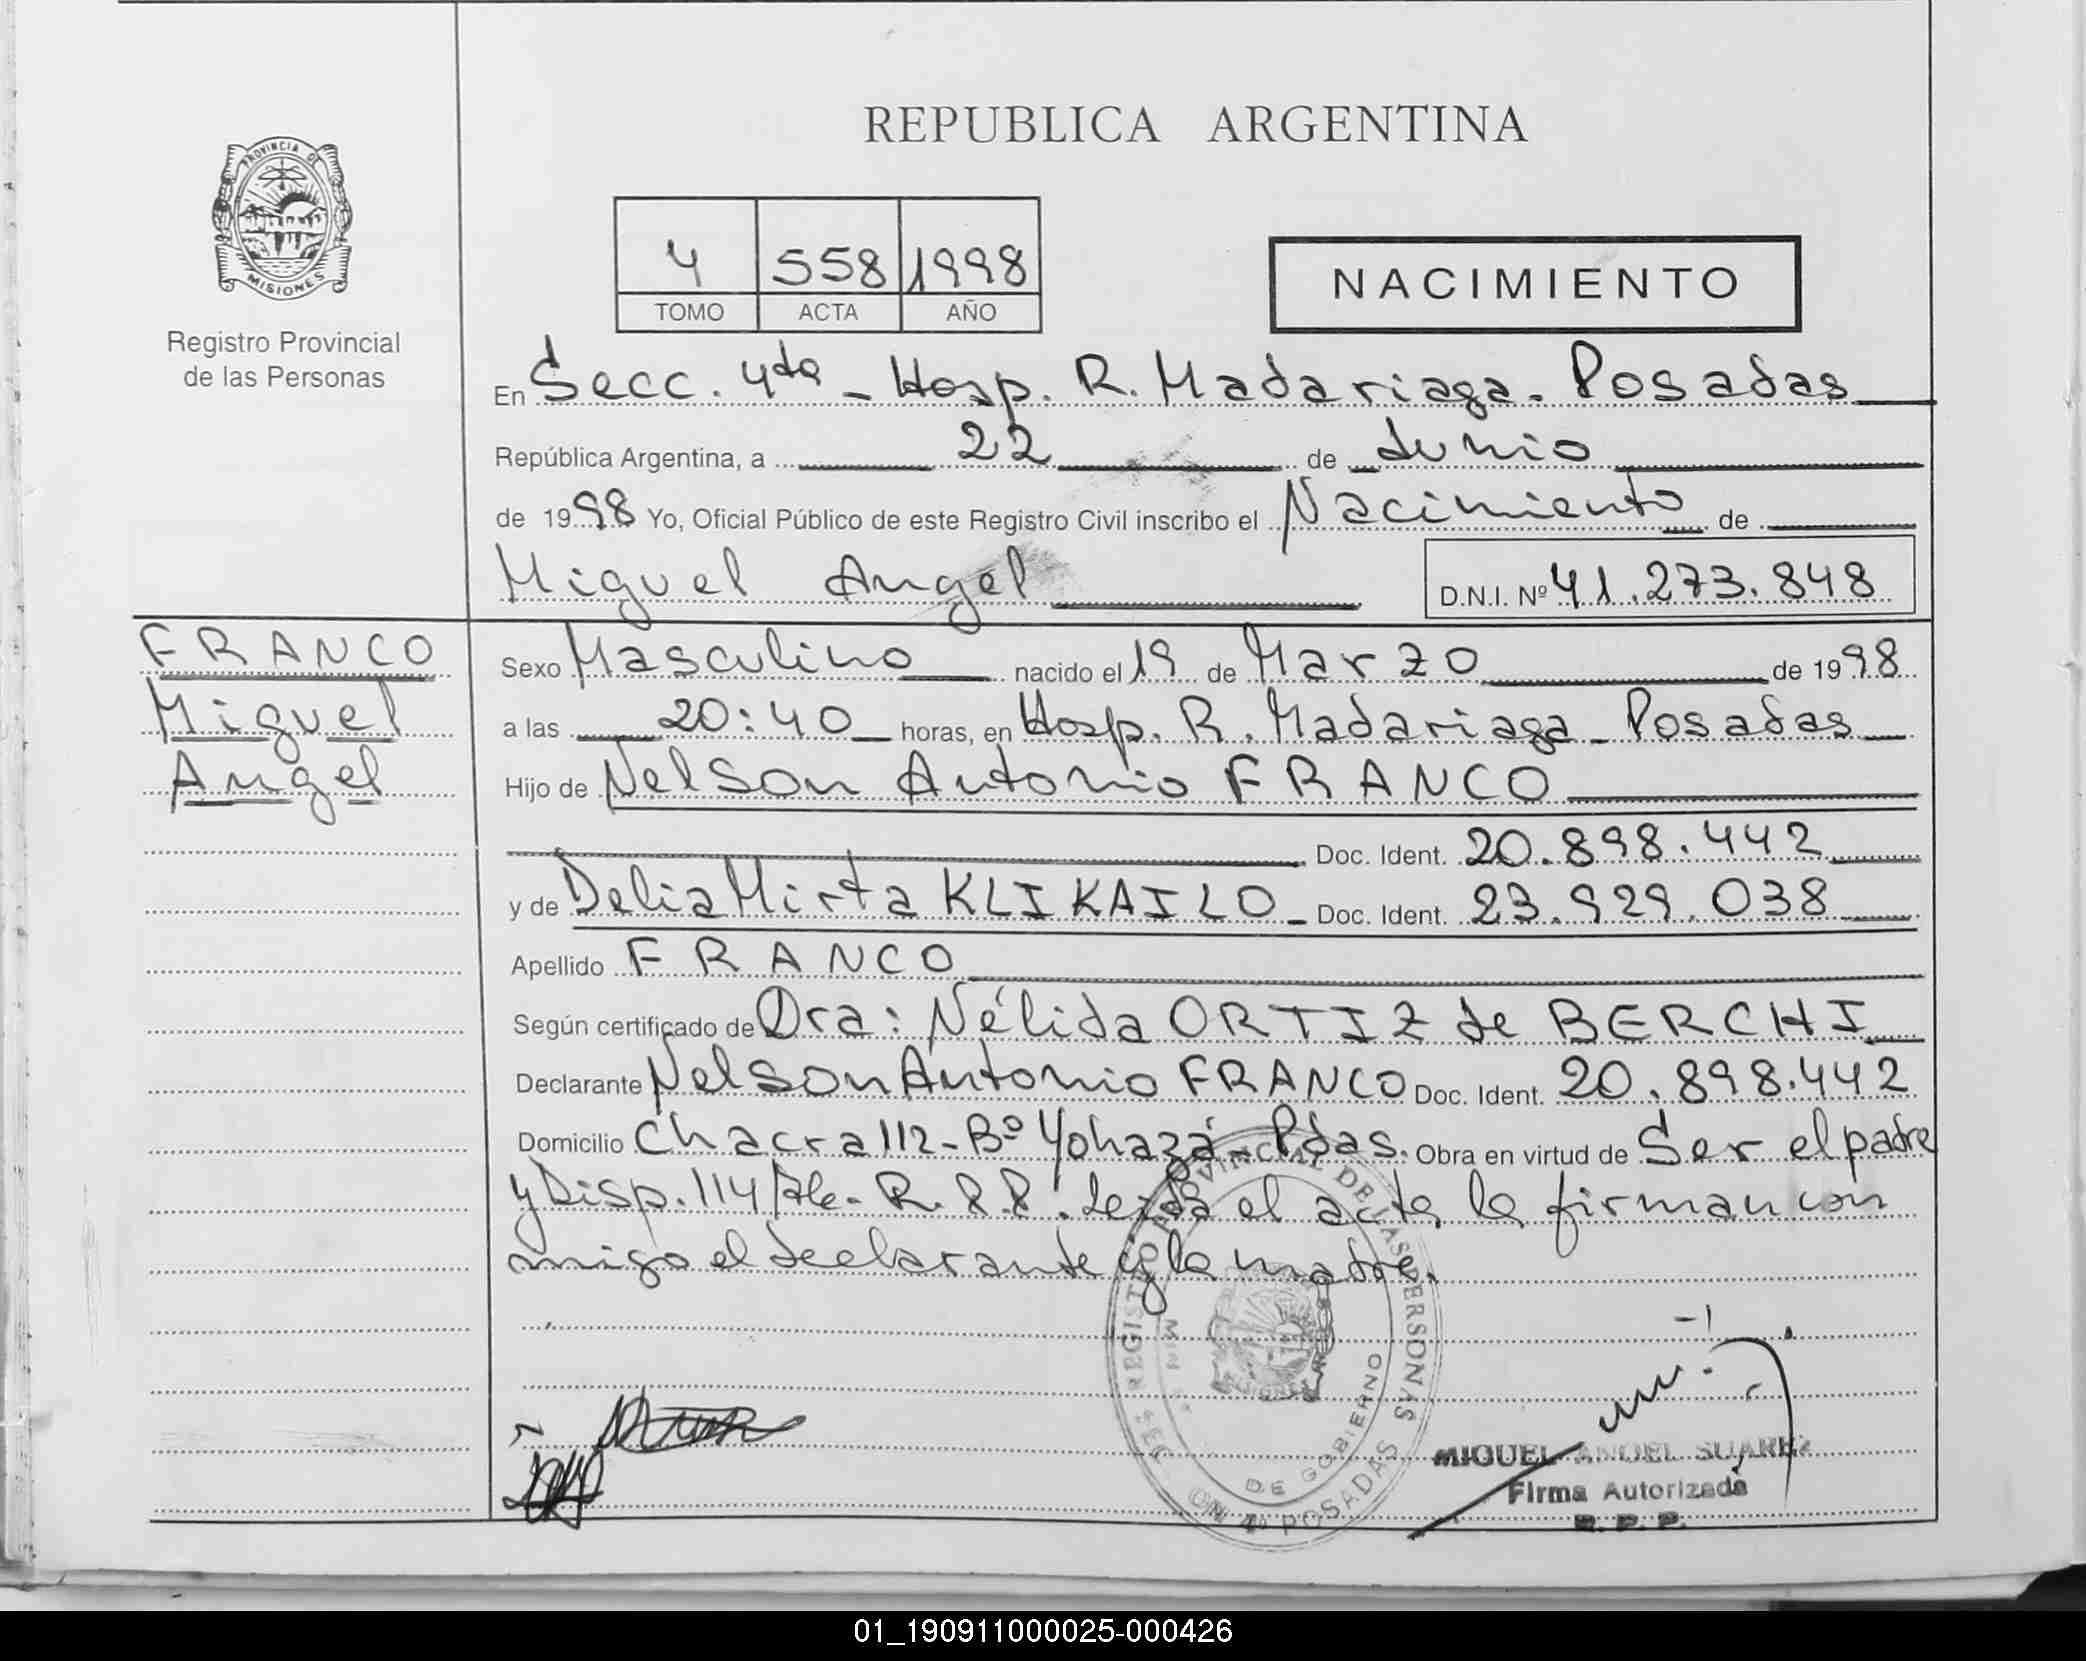 REPUBLICA ARGENTINA
PROVINCIA DE MISIONES
Registro Provincial
de las Personas
4 558 1998
TOMO ACTA AÑO
NACIMIENTO
En Secc. 4ta - Hosp. R. Madariaga - Posadas
República Argentina, a 22 de Junio
de 1998 Yo, Oficial Público de este Registro Civil inscribo el Nacimiento de
Miguel Angel D.N.I. Nº 41.273.848
FRANCO
Miguel
Angel
Sexo Masculino nacido el 19 de Marzo de 1998
a las 20:40 horas, en Hosp. R. Madariaga - Posadas
Hijo de Nelson Antonio FRANCO
Doc. Ident. 20.898.442
y de Delia Mirta KLIKAILO - Doc. Ident. 23.929.038
Apellido FRANCO
Según certificado de Dra: Nélida ORTIZ de BERCHI
Declarante Nelson Antonio FRANCO Doc. Ident. 20.898.442
Domicilio Chacra 112 - Bº Yohazá - Pdas. Obra en virtud de Ser el padre
y Disp. 114/ - R.P.P. Leida el acta la firman con
migo el declarante y la madre.
REGISTRO PROVINCIAL DE LAS PERSONAS
DE GOBIERNO
4ª POSADAS
MIGUEL ANGEL SUAREZ
Firma Autorizada
R. P. P.
01_190911000025-000426